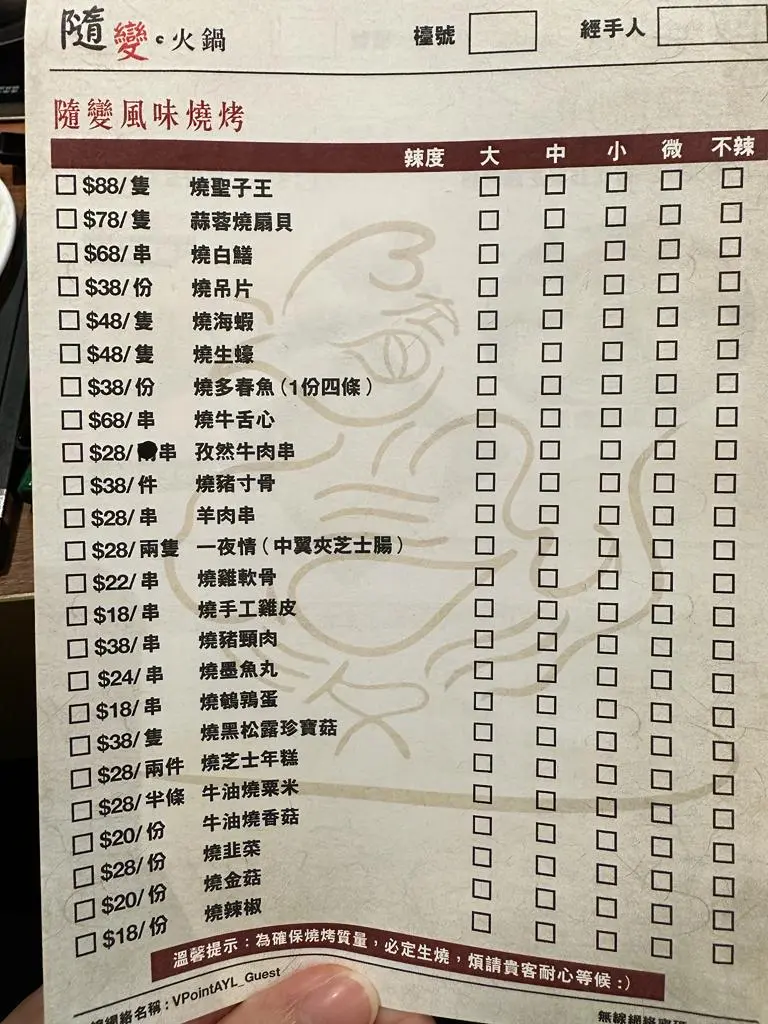 隨變•火鍋 檯號 經手人
隨變風味燒烤
辣度 大 中 小 微 不辣
$88/隻 燒聖子王
$78/隻 蒜蓉燒扇貝
$68/串 燒白鱔
$38/份 燒吊片
$48/隻 燒海蝦
$48/隻 燒生蠔
$38/份 燒多春魚（1份四條）
$68/串 燒牛舌心
$28/串 孜然牛肉串
$38/件 燒豬寸骨
$28/串 羊肉串
$28/兩隻 一夜情（中翼夾芝士腸）
$22/串 燒雞軟骨
$18/串 燒手工雞皮
$38/串 燒豬頸肉
$24/串 燒墨魚丸
$18/串 燒鵪鶉蛋
$38/隻 燒黑松露珍寶菇
$28/兩件 燒芝士年糕
$28/半條 牛油燒粟米
$20/份 牛油燒香菇
$28/份 燒韭菜
$20/份 燒金菇
$18/份 燒辣椒
溫馨提示：為確保燒烤質量，必定生燒，煩請貴客耐心等候:）
線網絡名稱：VPointAYL_Guest 無線網絡